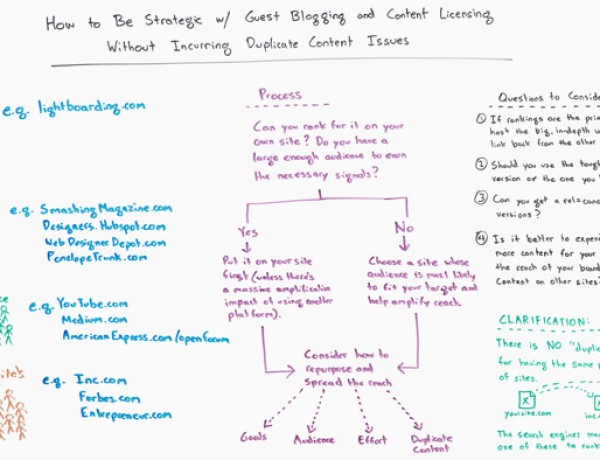 How to Be Strategic w/ Guest Blogging and Content Licensing
Without Incurring Duplicate Content Issues
e.g. lightboarding.com
e.g. SmashingMagazine.com
Designers.Hubspot.com
WebDesignerDepot.com
PenelopeTrunk.com
e.g. YouTube.com
Medium.com
AmericanExpress.com/openforum
e.g. Inc.com
Forbes.com
Entrepreneur.com
Process
Can you rank for it on your
own site? Do you have a
large enough audience to earn
the necessary signals?
Yes
No
Put it on your site
first (unless there's
a massive amplification
impact of using another
platform).
Choose a site whose
audience is most likely
to fit your target and
help amplify reach.
Consider how to
repurpose and
spread the reach
Goals
Audience
Effort
Duplicate
Content
Questions to Conside
① If rankings are the pri
host the big, in-depth
link back from the other
② Should you use the
version or the one you
③ Can you get a rel=can
versions?
④ Is it better to experi
more content for your
the reach of your
Content on other sites
CLARIFICATION:
There is NO "duplic
for having the same p
of sites.
yoursite.com
inc.
The search engines ma
one of these to rank